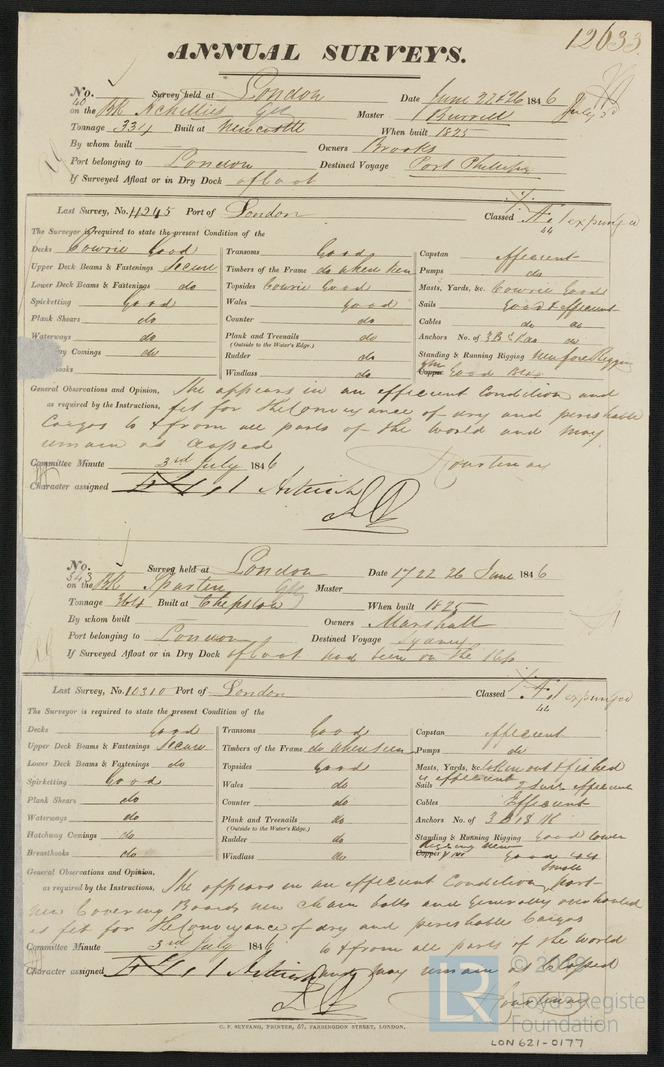 12633
ANNUAL SURVEYS.
No. Survey held at London Date June 22 & 26 1846
on the BK Achilles Master Burrell July 3rd
Tonnage 334 Built at Newcastle When built 1825
By whom built Owners Brooks
Port belonging to London Destined Voyage Port Phillip
If Surveyed Afloat or in Dry Dock afloat
Last Survey, No. 4245 Port of London Classed Æ 1 expunged
44
The Surveyor is required to state the present Condition of the
Decks Cowrie Good Transoms Good Capstan efficient
Upper Deck Beams & Fastenings Secure Timbers of the Frame do when seen Pumps do
Lower Deck Beams & Fastenings do Topsides Cowrie Good Masts, Yards, &c. Cowrie Good
Spirketting Good Wales Good Sails Good & efficient
Plank Shears do Counter do Cables do do
Waterways do Plank and Treenails do Anchors No. of 3 B
(Outside to the Water's Edge.)
ay Comings do Rudder do Standing & Running Rigging New fore Rigging
hooks Windlass do Copper Good
General Observations and Opinion, She appears in an efficient Condition and
as required by the Instructions, fit for the Conveyance of dry and perishable
Cargos to & from all parts of the World and may
remain as Classed
Committee Minute 3rd July 1846
Character assigned Æ 1
No. Survey held at London Date 17 22 26 June 1846
543
on the BK Spartan Master
Tonnage Built at Chepstow When built 1825
By whom built Owners Marshall
Port belonging to London Destined Voyage Sydney
If Surveyed Afloat or in Dry Dock afloat had been on the Slip
Last Survey, No. 10310 Port of London Classed Æ 1 expunged
44
The Surveyor is required to state the present Condition of the
Decks Good Transoms Good Capstan efficient
Upper Deck Beams & Fastenings Secure Timbers of the Frame do when seen Pumps do
Lower Deck Beams & Fastenings do Topsides Good Masts, Yards, &c. taken out & fished
is efficient
Spirketting Good Wales do Sails 2 Suits efficient
Plank Shears do Counter do Cables Efficient
Waterways do Plank and Treenails do Anchors No. of 3 B
(Outside to the Water's Edge.)
Hatchway Comings do Rudder do Standing & Running Rigging Good lower
Rigging New
Breasthooks do Windlass do Copper Good
General Observations and Opinion, She appears in an efficient Condition, part
as required by the Instructions,
new Covering Boards new chain bolts and generally overhauled
is fit for the Conveyance of dry and perishable Cargos
Committee Minute 3rd July 1846 to & from all parts of the World
Character assigned Æ 1 and may remain as Classed
G. F. SEYFANG, PRINTER, 57, FARRINGDON STREET, LONDON.
LR
© 2019
Lloyd's Register
Foundation
LON 621-0177